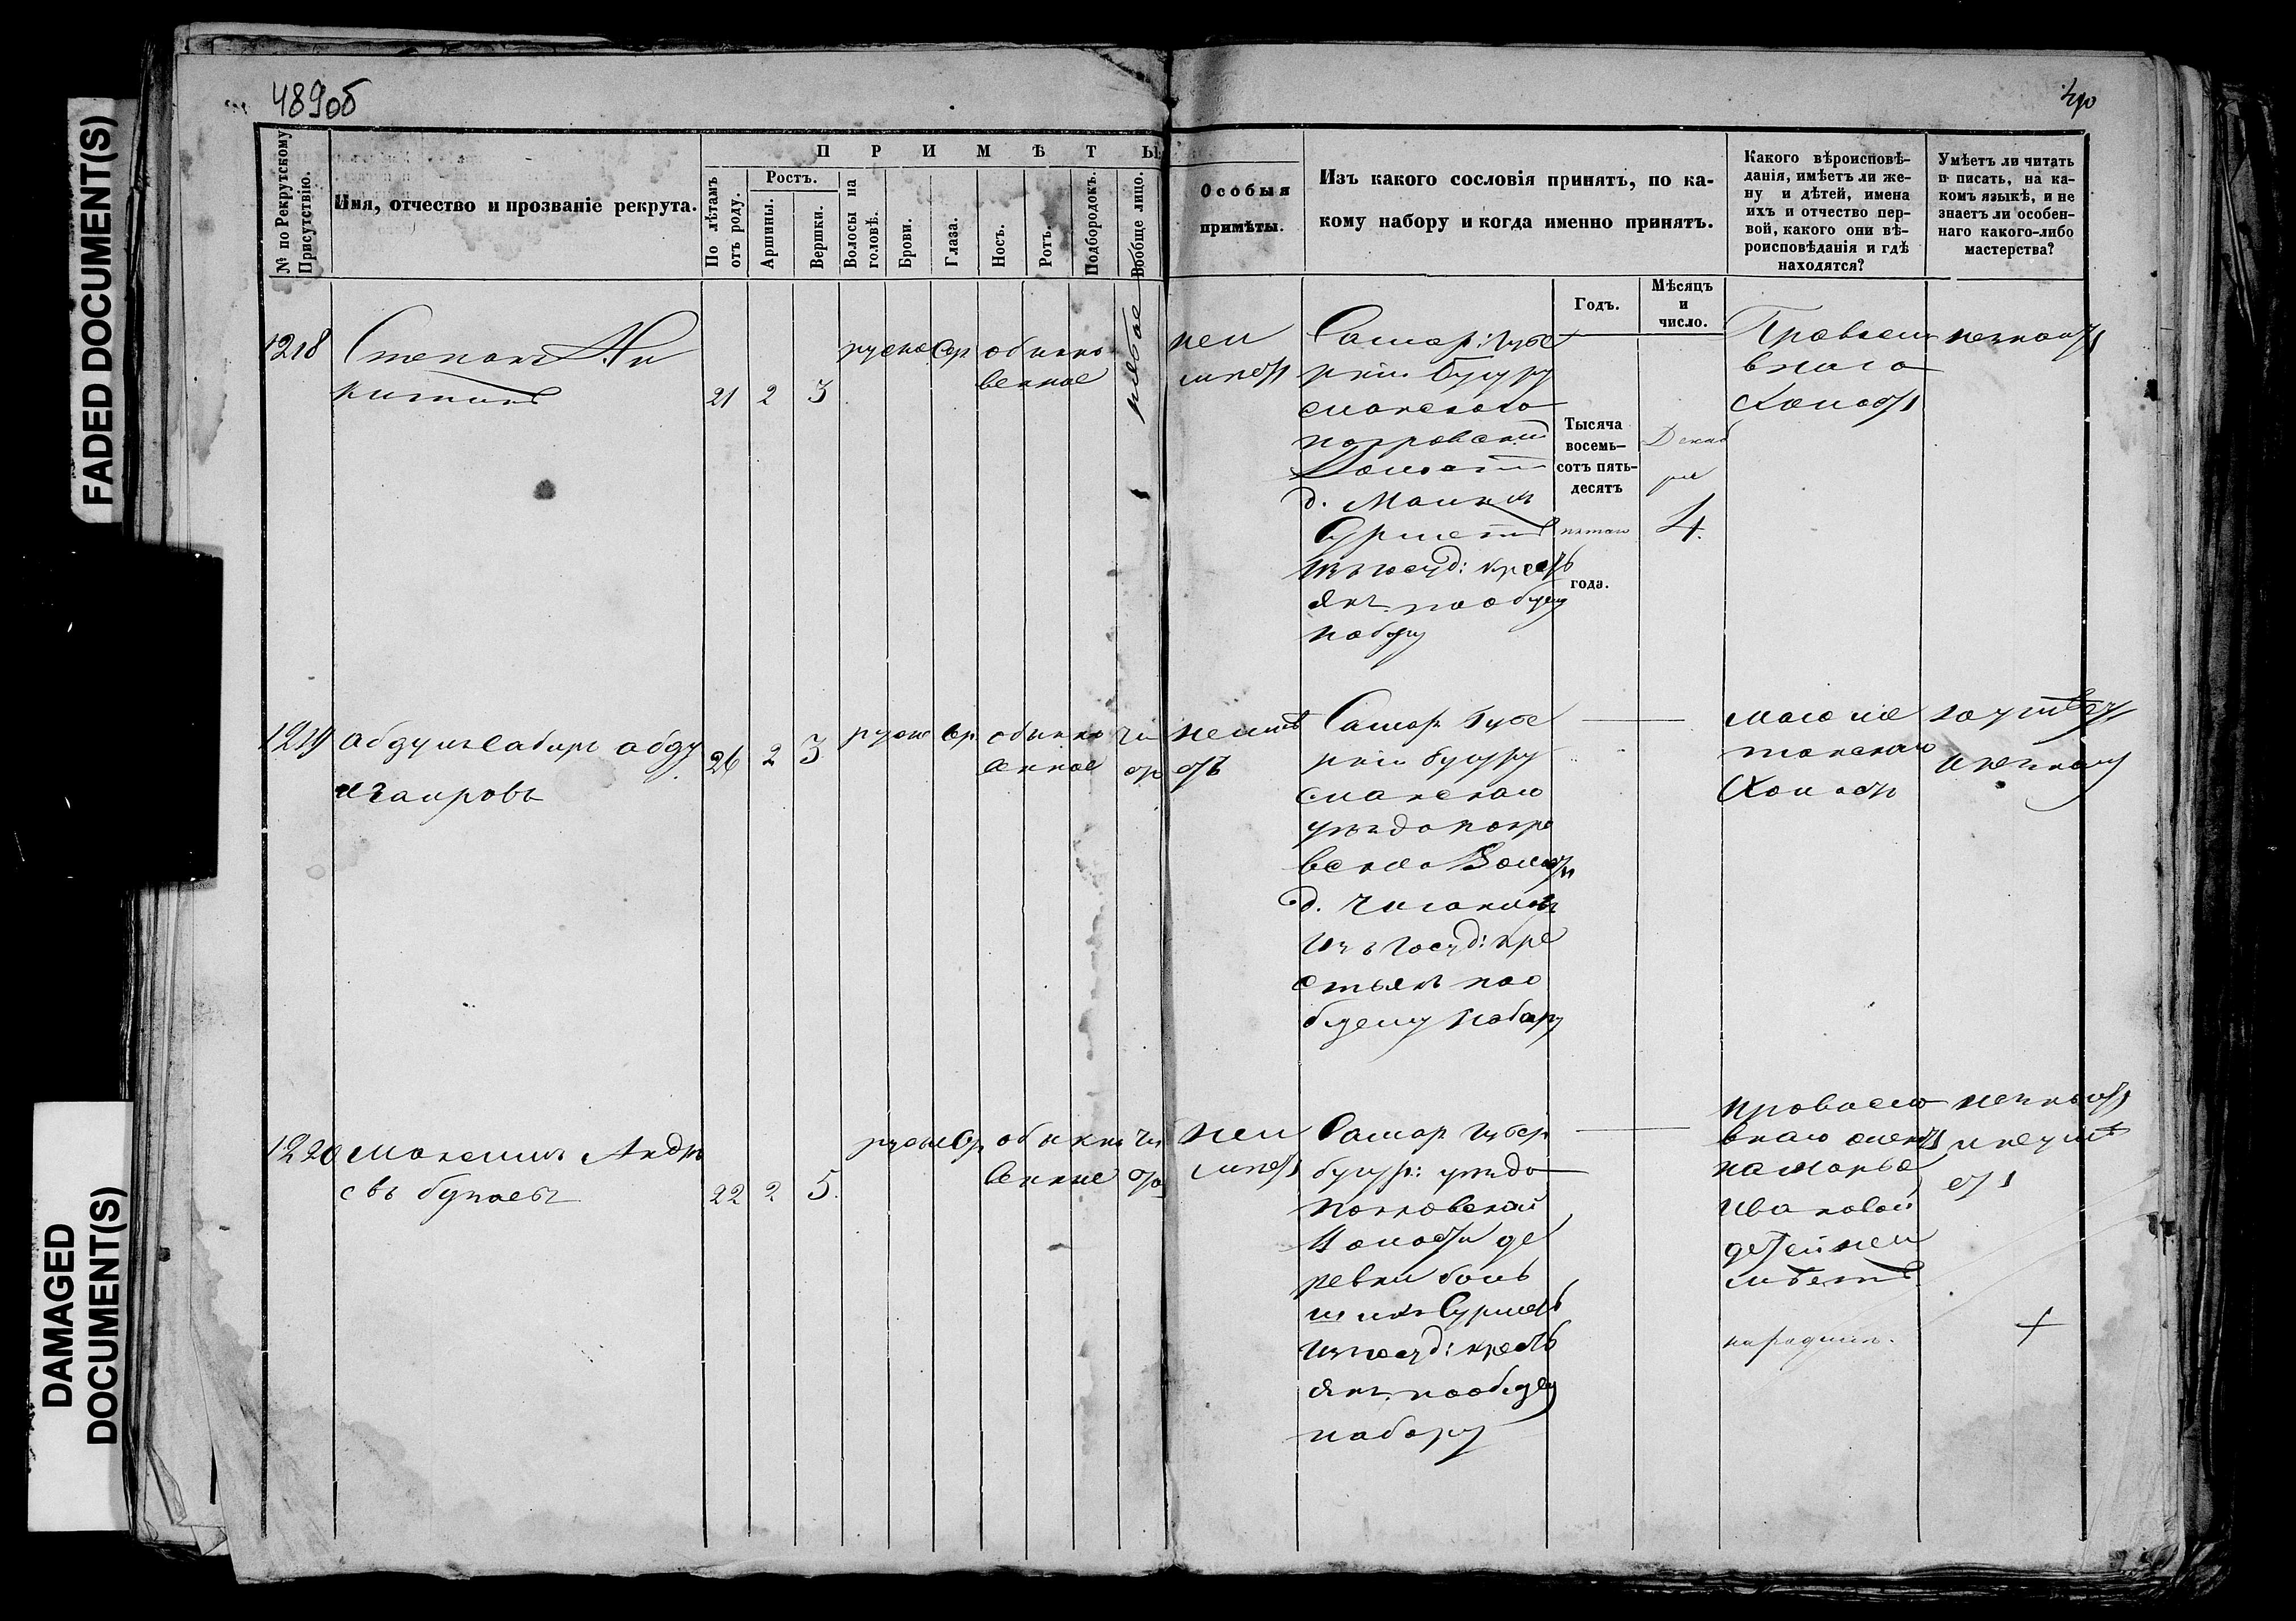 FADED DOCUMENT(S)
DAMAGED
DOCUMENT(S)
489об
490
№ по Рекрутскому
Присутствію.
Имя, отчество и прозваніе рекрута.
ПРИМѢТЫ
По лѣтамъ
отъ роду.
Ростъ.
Аршины.
Вершки.
Волосы на
головѣ.
Брови.
Глаза.
Носъ.
Ротъ.
Подбородокъ.
Вообще лицо.
Особыя
примѣты.
Изъ какого сословія принятъ, по ка-
кому набору и когда именно принятъ.
Годъ.
Мѣсяцъ
и
число.
Какого вѣроисповѣ-
данія, имѣетъ ли же-
ну и дѣтей, имена
ихъ и отчество пер-
вой, какого они вѣ-
роисповѣданія и гдѣ
находятся?
Умѣетъ ли читать
и писать, на ка-
комъ языкѣ, и не
знаетъ ли особен-
наго какого-либо
мастерства?
1218
Степанъ Ни
китинъ
21 2 3
русые сер обыкно
венное
рябое
неи
меет
Самар: губе
рніи бугуру
сланскаго
покровской
Волости
д. Малых
Сурмет
Изъ госуд: кресть
янъ по общему
набору
Тысяча
восемь-
сотъ пять-
десятъ
пятаго
года.
Декаб
ря
4.
Правосла
внаго
Холост
1219
Абдулсабиръ абду
26 2 3
русые сер обыкно
венное
чи
сто
неимѣ
етъ
Самар. Губе
рніи бугуру
сланскаго
уѣзда покро
вской Волости
д.
Изъ Госуд: кре
стьянъ по о
бщему Набору
магоме
танскаго
Холостъ
1220
Максимъ Андре
евъ
22 2 5.
русые сер обыкно
венное
чи
сто
неи
меет
Самар губер
бугур: уѣзда
покровской
Волости де
ревни боль
шихъ Сурметъ
Изъ госуд: кресть
янъ по общему
набору
православ
внаго женат
на Марье
Ивановой
детей неи
мѣетъ
на родине.